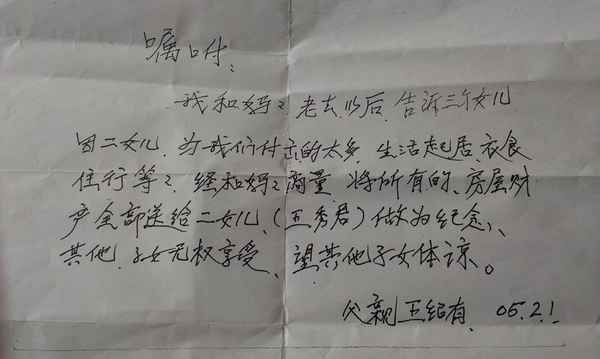 嘱咐：
我和妈妈老去以后，告诉三个女儿
因二女儿，为我们付出的太多，生活起居、衣食
住行等等，经和妈妈商量 将所有的、房屋财
产全部送给二女儿、(王秀君)做为纪念、
其他，子女无权享受、望其他子女体谅。
父亲王绍有、05.2.1